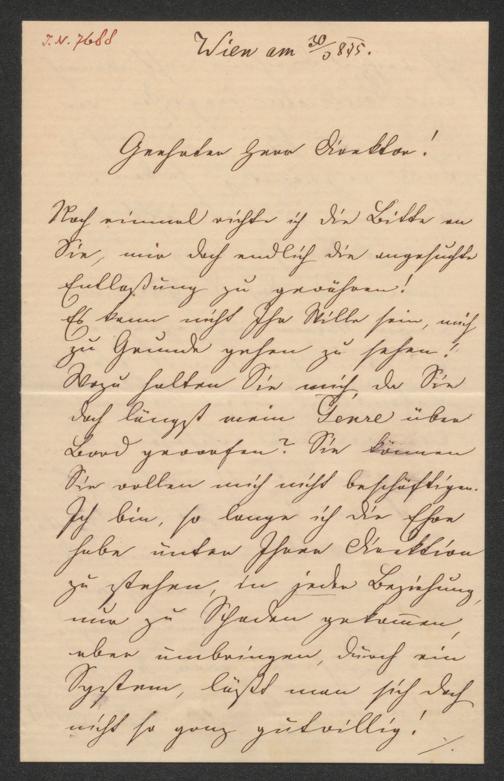 I.N. 7688
Wien am 30/5 875.
Geehrter Herr Direktor!
Noch einmal richte ich die Bitte an
Sie, mir doch endlich die angesuchte
Entlaßung zu gewähren!
Es kann nicht Ihr Wille sein, mich
zu Grunde gehen zu sehen!
Wozu halten Sie mich, da Sie
doch längst mein Genre über
Bord geworfen? Sie können
Sie wollen mich nicht beschäftigen.
Ich bin, so lange ich die Ehre
habe unter Ihrer Direktion
zu stehen, in jeder Beziehung,
nur zu Schaden gekommen,
aber umbringen, durch ein
System, läßt man sich doch
nicht so ganz gutwillig!
./.